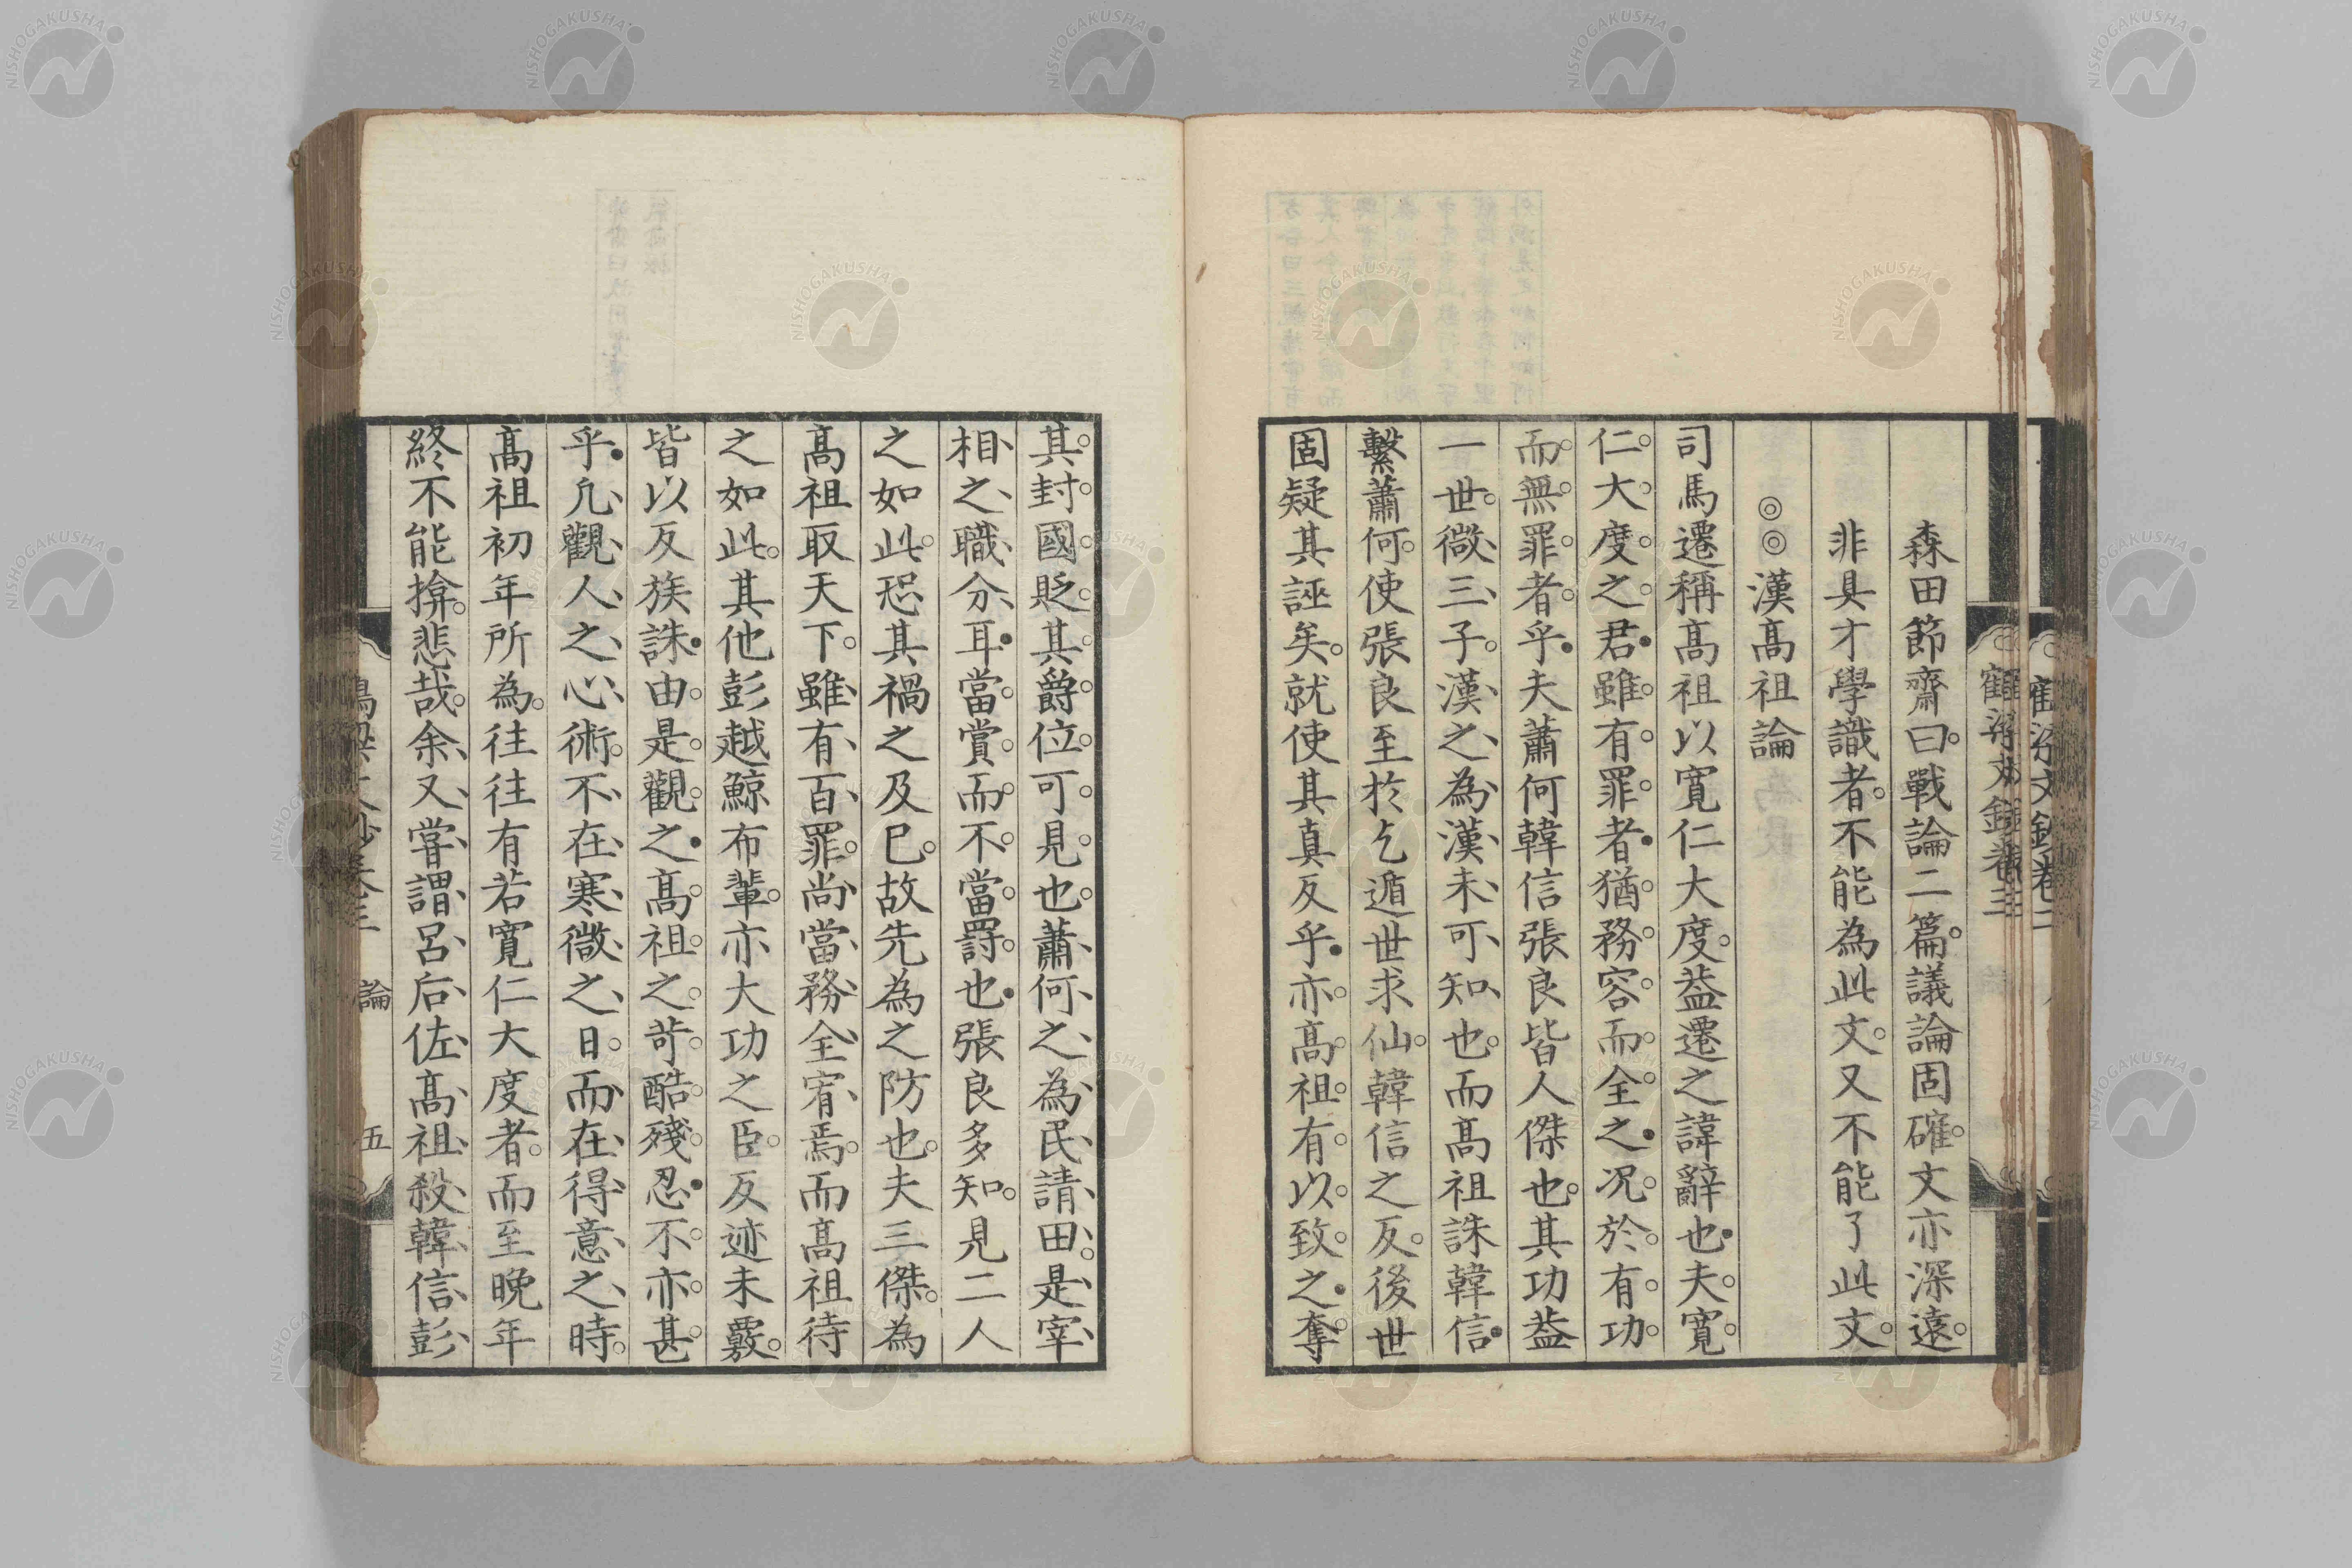 森田節齋曰戰論二篇議論固確文亦深遠
非具才學識者不能為此文又不能了此文
◎◎漢髙祖論
司馬遷稱髙祖以寬仁大度葢遷之諱辭也夫寬
仁大度之君雖有罪者猶務容而全之况於有功
而無罪者乎夫蕭何韓信張良皆人傑也其功葢
一世微三子漢之為漢未可知也而髙祖誅韓信
繫蕭何使張良至於乞遁世求仙韓信之反後世
固疑其誣矣就使其真反乎亦髙祖有以致之奪
其封國貶其爵位可見也蕭何之為民請田是宰
相之職分耳當賞而不當罸也張良多知見二人
之如此恐其禍之及已故先為之防也夫三傑為
髙祖取天下雖有百罪尚當務全宥焉而髙祖待
之如此其他彭越鯨布輩亦大功之臣反迹未覈
皆以反族誅由是觀之髙祖之苛酷殘忍不亦甚
乎凡觀人之心術不在寒微之日而在得意之時
髙祖初年所為往往有若寬仁大度者而至晚年
終不能揜悲哉余又嘗謂呂后佐髙祖殺韓信彭
論
五
NISHOGAKUSHA